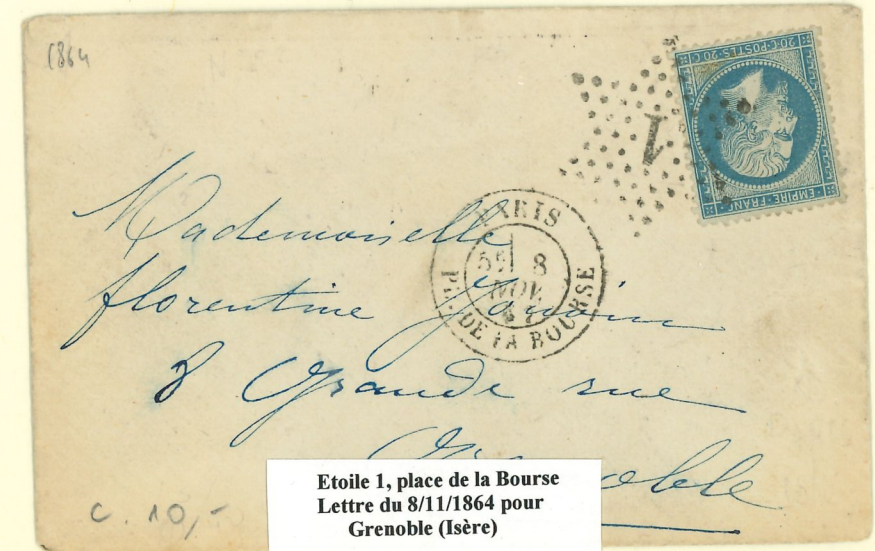 1864
20 C. POSTES 20 C.
EMPIRE FRANC
1
PARIS
8
NOV.
PL. DE LA BOURSE
Mademoiselle
florentine
8 Grande rue
Grenoble
C. 10,-
Etoile 1, place de la Bourse
Lettre du 8/11/1864 pour
Grenoble (Isère)